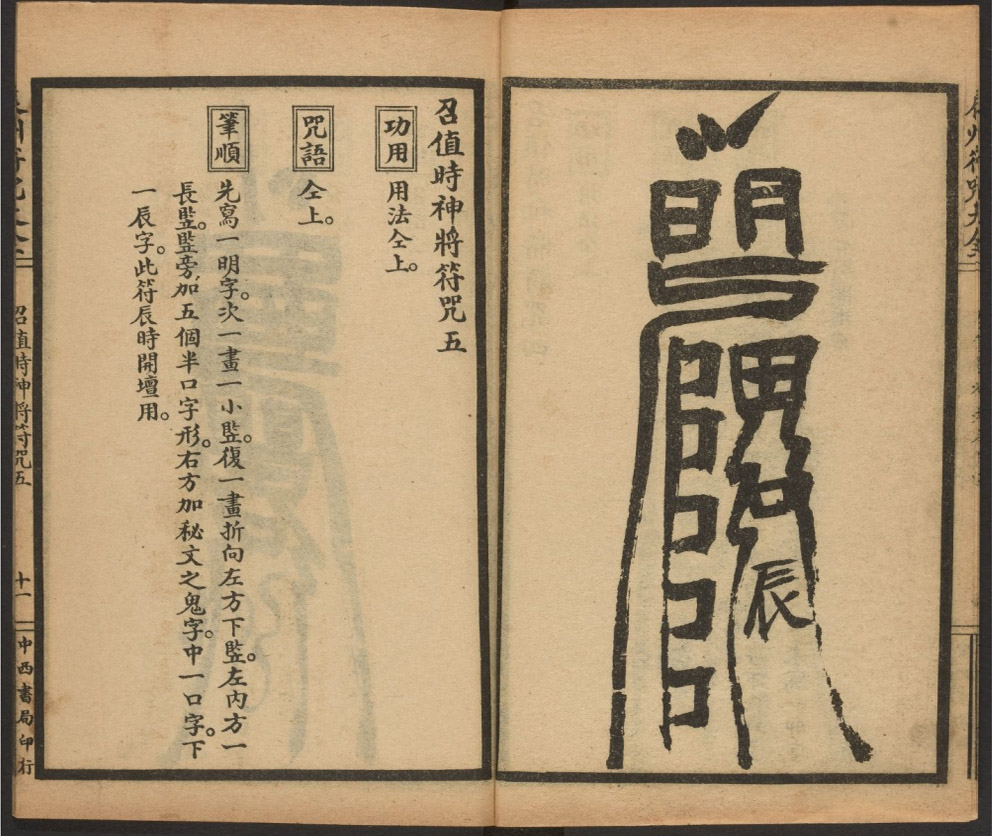 州符咒大全
明
辰
召值時神將符咒五
功用 用法仝上。
咒語 仝上。
筆順 先寫一明字。次一畫一小監。復一畫折向左方下監。左內方一
長監。監旁加五個半口字形。右方加秘文之鬼字。中一口字。下
一辰字。此符辰時開壇用。
召值時神將符咒五
十一
中西書局印行